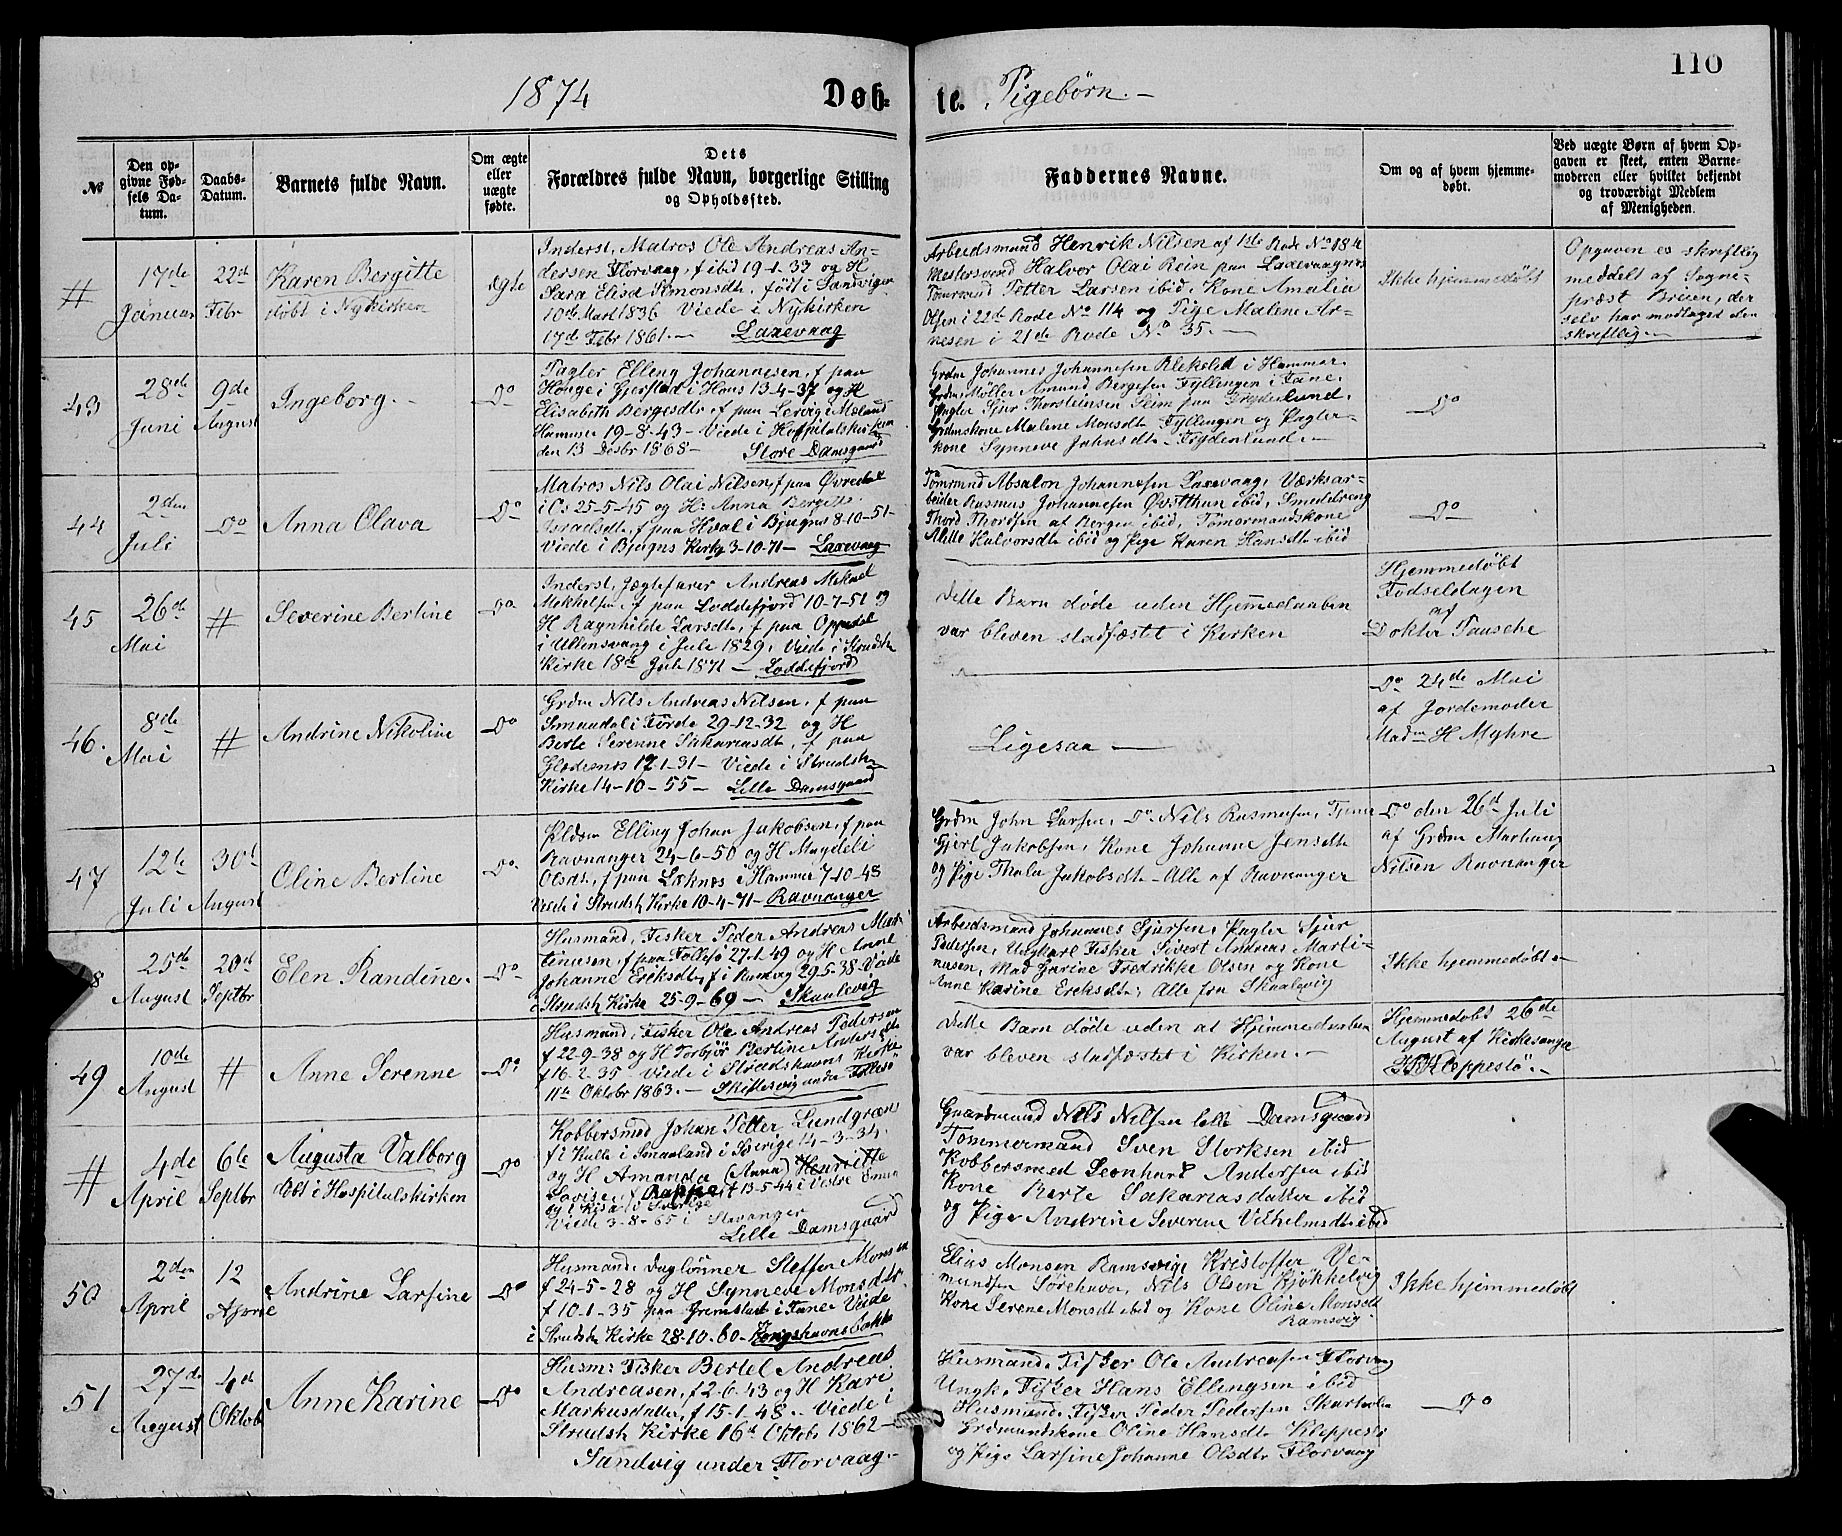 110
1874 Døb- te. Pigebørn.-
№
Den op-
givne Fød-
sels Da-
tum.
Daabs-
Datum.
Barnets fulde Navn.
Om ægte
eller
uægte
fødte.
Dets
Forældres fulde Navn, borgerlige Stilling
og Opholdssted.
Faddernes Navne.
Om og af hvem hjemme-
døbt.
Ved uægte Børn af hvem Op-
gaven er skeet, enten Barne-
moderen eller hvilket bekjendt
og troværdigt Medlem
af Menigheden.
#
17de
Januar
22de
Febr
Karen Bergitte
døbt i Nykirken
ægte
Inderst, Matros Ole Andreas An-
dersen Florvaag, f ibid 19-1-33 og H
Sara Elisa Simonsdt, født i Sandvigen
10de Marts 1836 Viede i Nykirken
17de Febr 1861.- Laxevaag
Arbeidsmand Henrik Nilsen af 1ste Rode No 184
Halvor Olai Rein paa Laxevaagnes
Petter Larsen ibid, Kone Amalia
Olsen i 22de Rode No 114 og Pige Malene Ar-
nesen i 21de Rode No 35.-
Ikke hjemmedøbt
Opgaven er skriftlig
meddelt af Sogne-
præst Bruen, der
selv har modtaget den
skriftlig.-
43
28de
Juni
9de
August
Ingeborg.-
Do
Pagter Elling Johannesen, f paa
Houge i Gjerstad i Hous 13-4-37 og H
Elisabeth Bergesdt, f paa Lervig i Meland
Hammer 19-8-43- Viede i Hospitalskirken
den 13 Desbr 1868- Store Damsgaard
Grdm Johannes Johannesen Blekeled i Hammer.
Grdm, Møller Amund Bergesen Fyllingen i Fane,
Pagter Sjur Thorsteinsen Seim paa Frydenlund,
Grdmskone Malene Monsdt Fyllingen og Pagter-
kone Synneve Johnsdt Frydenlund.-
Do
44
2den
Juli
Do
Anna Olava
Do
Matros Nils Olai Nilsen, f paa Øvredal
i O: 25-5-45 og H: Anna Bergitte
Israelsdt, f paa Hval i Bjugns 8-10-51-
Viede i Bjugns Kirke 3-10-71- Laxevaag
Tømrmnd Absalon Johannesen Laxevaag, Værksar-
beider Rasmus Johannesen Øvstthun ibid, Smedsvend
Thord Thordsen af Bergen ibid, Tømermandskone
Alette Halvorsdt ibid og Pige Karen Hansdt ibid
Do
45
26de
Mai
#
Severine Bertine
Do
Inderst, Jægtefører Andreas Mikael
Mikkelsen, f paa Loddefjord 10-7-51 og
H Ragnhilde Larsdt, f paa Oppedal
i Ullensvang i Juli 1829, Viede i Strudsh
Kirke 18de Juli 1871- Loddefjord
Dette Barn døde uden Hjemmedaaben
var bleven stadfæstet i Kirken
Hjemmedøbt
Fødselsdagen
af
Doktor Tausche
46.
8de
Mai
#
Andrine Nikoline
Do
Grdm Nils Andreas Nilsen, f paa
Smaadal i Førde 29-12-32 og H
Berte Serenne Sakariasdt, f paa
Gladesnes 17-1-31- Viede i Strudsh
Kirke 14-10-55- Lille Damsgaard
Ligesaa
Do 24de Mai
af Jordemoder
Madm H Myhre
47
12te
Juli
30te
August
Oline Bertine
Do
Pldsm Elling Johan Jakobsen, f paa
Ravnanger 24-6-50 og H Magdeli
Olsdt, f paa Løknes i Hammer 7-10-48
Viede i Strudsh Kirke 10-4-71- Ravnanger
Grdm John Larsen, Do Nils Rasmusen, Tjener
Fjerl Jakobsen, Kone Johanne Jensdt
og Pige Thale Jakobsdt- Alle af Ravnanger
Do den 26de Juli
af Grdm
Nilsen Ravnanger
8
25de
August
20de
Septbr
Elen Randine.
Do
Husmand, Fisker Peder Andreas Mar-
tinusen, f paa Follesø 27-1-49 og H Anne
Johanne Eriksdt, f i Ramsvig 29-5-38 Viede
i Strudsh Kirke 25-9-69- Skaalevig
Arbeidsmand Johannes Sjursen, Pagter Sjur
Pedersen, Ungkarl Fisker Sivert Andreas Marti-
nusen, Mad Gurine Fredrikke Olsen og Kone
Anne Karine Eriksdt, Alle fra Skaalevig
Ikke hjemmedøbt-
49
10de
August
#
Anne Serenne
Do
Husmand, Fisker Ole Andreas Pedersen
f 22-9-38 og H Torbjør Bertine Andersdt
f 16-2-35- Viede i Strudshavns Kirke
11te Oktobr 1863.- Skiftesvig under Follesø
Dette Barn døde uden at Hjemmedaaben
var bleven stadfæstet i Kirken.-
Hjemmedøbt 26de
August af Kirkesanger
Kleppestø.-
#
4de
April
6te
Septbr
Augusta Valborg
døbt i Hospitalskirken
Do
Kobbersmed Johan Petter Lundgreen
f i Kulle i Smaaland i Sverige 14-3-34.
og H Amanda (Anna) Henriette
Lovise, f 13-5-44 i Vestre
Viede 3-8-65 i Stavanger
Lille Damsgaard
Gaardmand Nils Nilsen lille Damsgaard
Tømmermand Sven Storksen ibid
Kobbersmed Leonhard Andersen ibid
Kone Berte Sakariasdatter ibid
og Pige Andrine Severine Vilhelmsdt ibid
50
2den
April
12
April
Andrine Larsine
Do
Husmand, Daglønner Steffen Monsen
f 24-5-28 og H Synneve Monsdtr.
f 10-1-35 paa Gremstad i Fane Viede
i Strudsh Kirke 28-10-60- Kongshavnsbakke
Elias Monsen Ramsvig, Kristoffer Ve-
mundsen Sørehavn, Nils Olsen Bjøkkelvig
Kone Serene Monsdt ibid og Kone Oline Monsdt
Ramsvig
Ikke hjemmedøbt
51
27de
August
4de
Oktobr
Anne Karine
Do
Husm: Fisker Bertel Andreas
Andreasen, f 2-6-43 og H Kari
Markusdatter, f 15-1-48.. Viede i
Strudsh Kirke 16de Oktbr 1862-
Sandvig under Florvaag.-
Husmand, Fisker Ole Andreasen Florvaag
Ungk, Fisker Hans Ellingsen ibid
Husmand, Fisker Peder Pedersen
Grdmandskone Oline Hansdt Kleppestø
og Pige Larsine Johanne Olsdtr Florvaag
Do